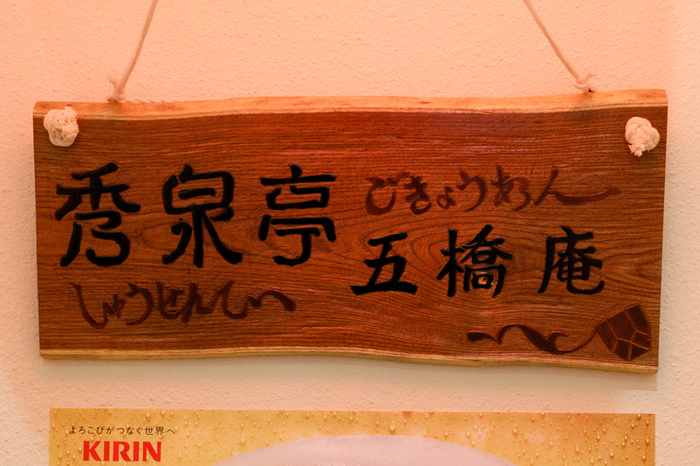 秀泉亭
しゅうせんてい
ごきょうあん
五橋庵
よろこびがつなぐ世界へ
KIRIN